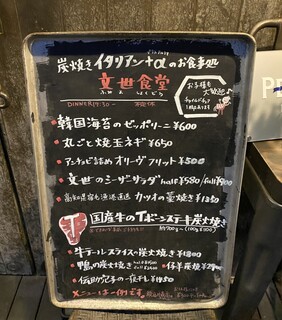 炭焼き イタリアン+αのお食事処
文世食堂
DINNER 17:30~ 不定休
お子様も
大歓迎♪
韓国海苔のゼッポリーニ ¥600
丸ごと焼玉ネギ ¥650
アンチョビ詰め オリーヴフリット ¥500
文世のシーザーサラダ half¥580/full¥900
高知県 漁港直送 カツオの藁焼き ¥1350
国産牛のTボーンステーキ炭火焼き
約700g~(100g¥
牛テールスライスの炭火焼き ¥1800
鴨の炭火焼き 仔羊炭焼
一夜干し ¥1350
メニューは一例です。